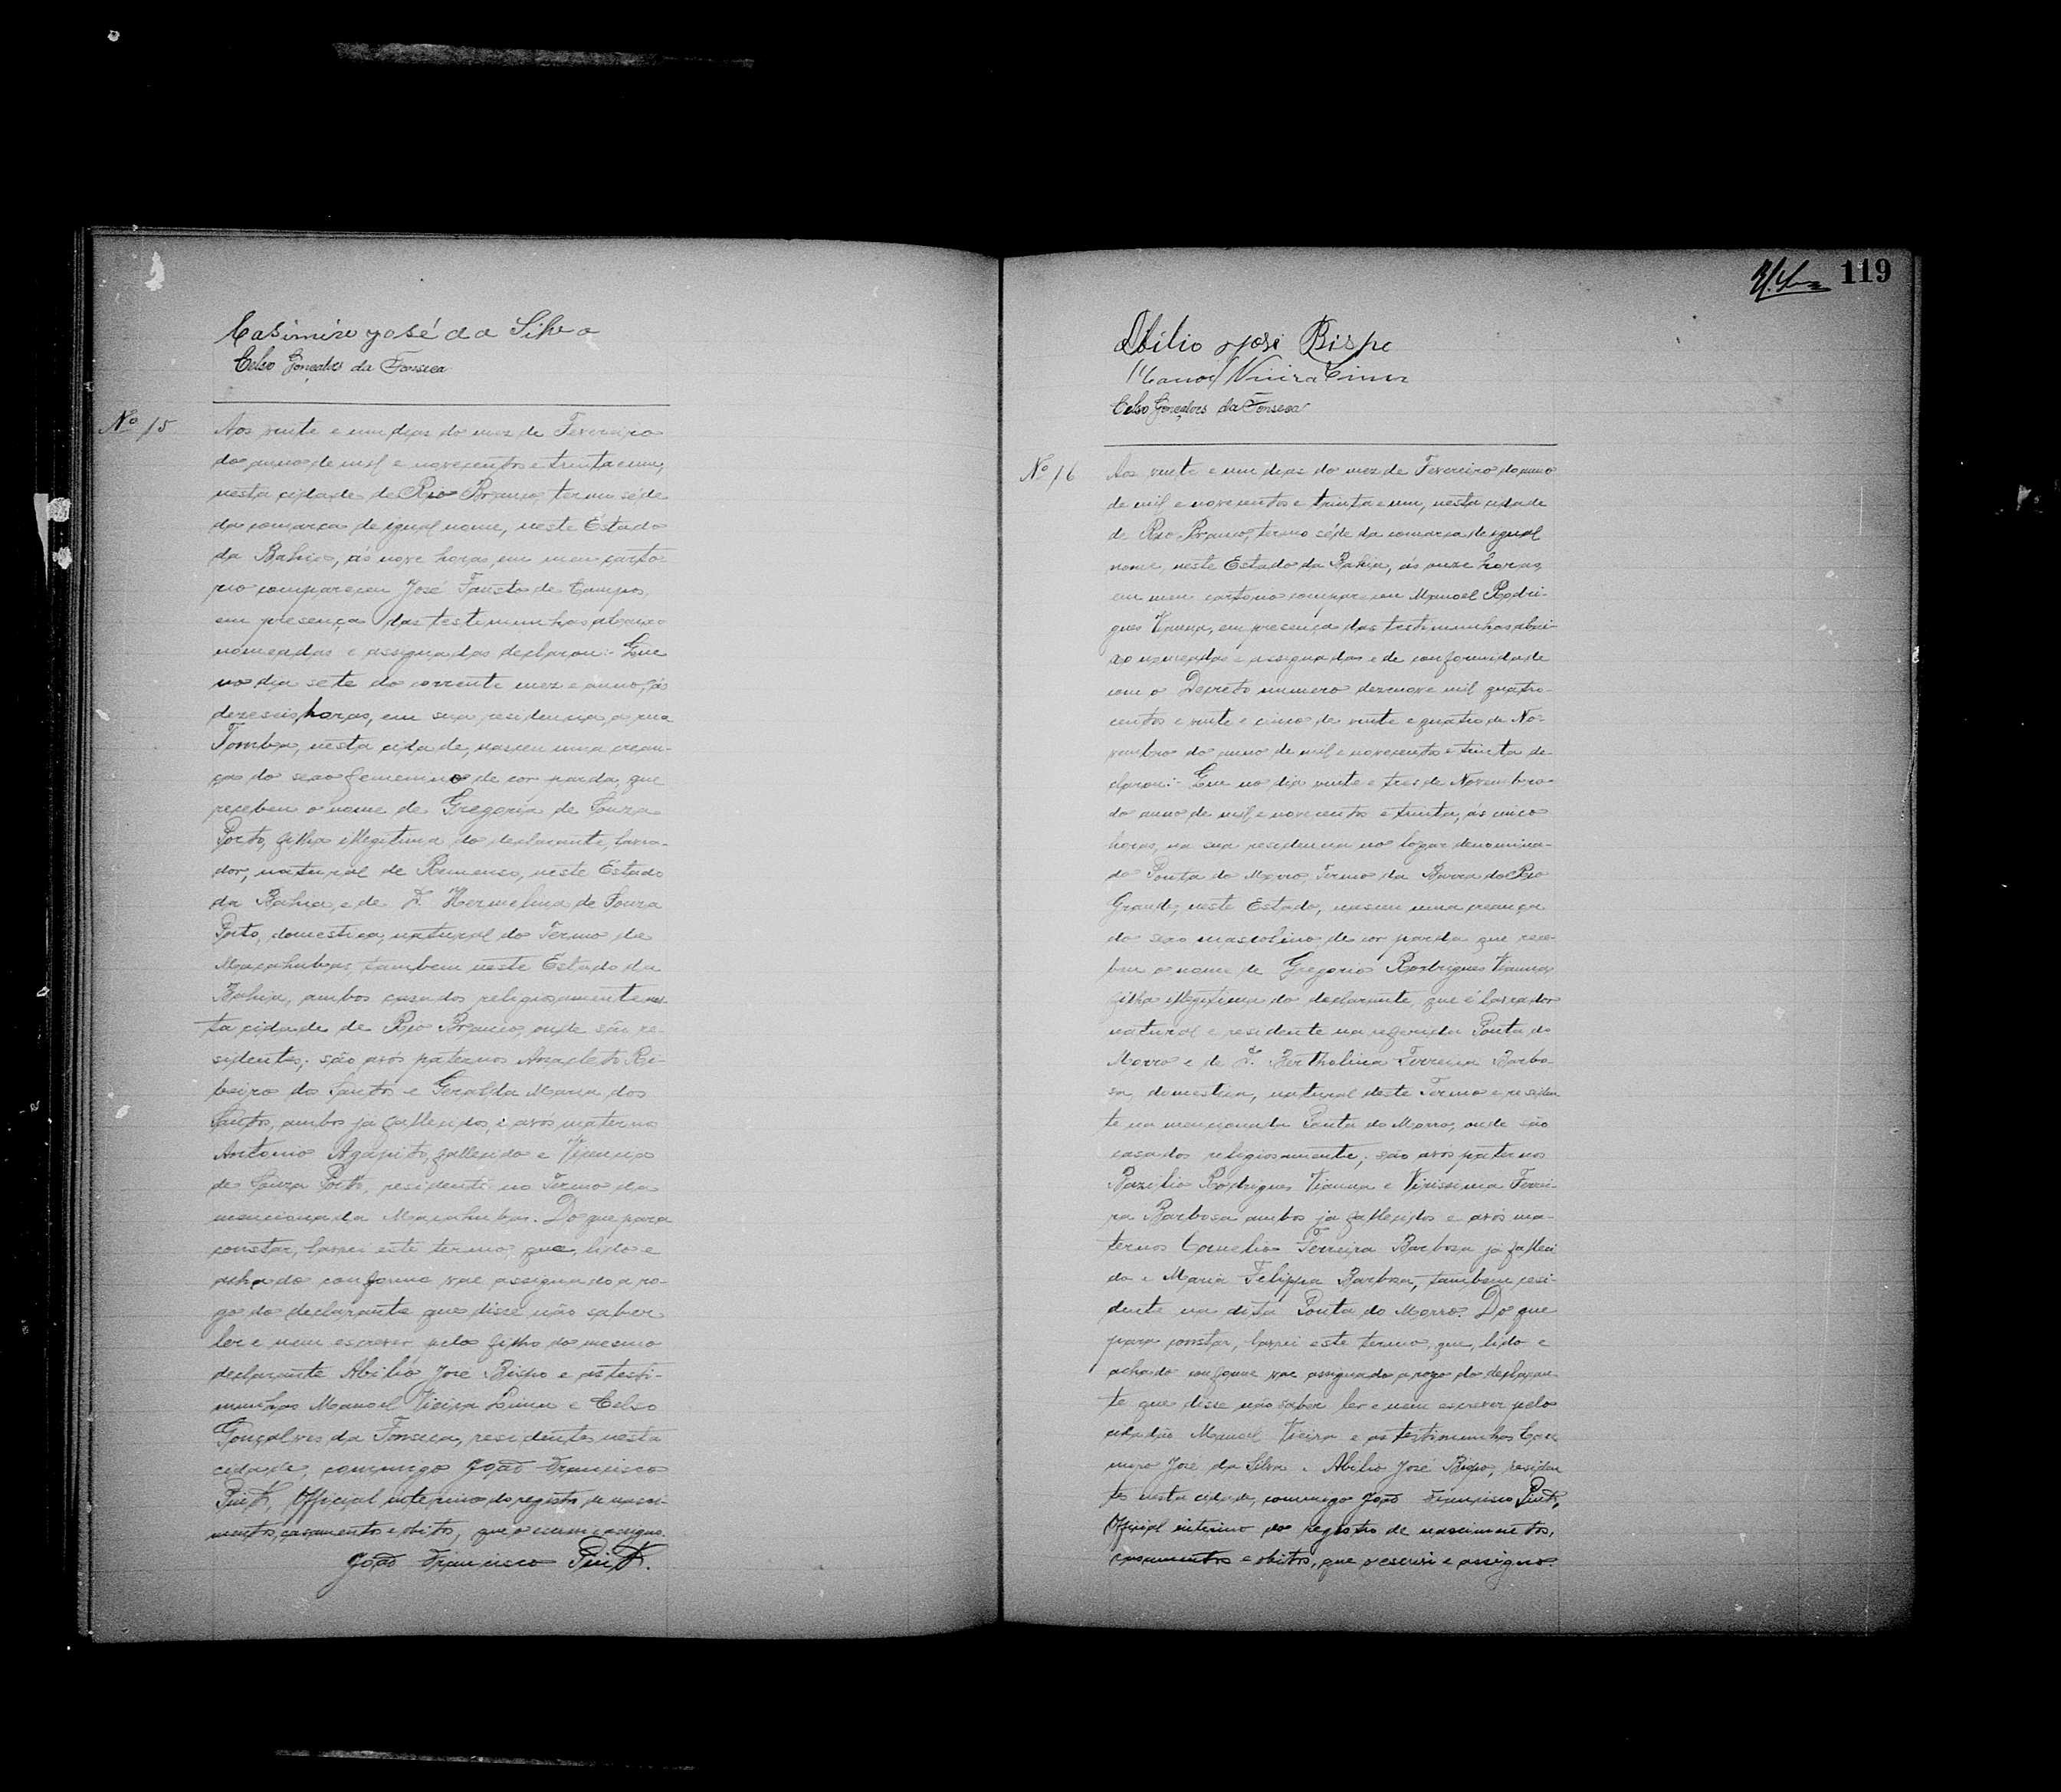 Casimiro José da Silva
Celso Gonçalves da Fonseca
Nº 15
Aos vinte e um dias do mez de Fevereiro
do anno de mil e novecentos e trinta e um,
nesta cidade de Rio Branco, termo séde
da comarca de igual nome, neste Estado
da Bahia, ás nove horas, em meu carto-
rio compareceu José Fausto de Campos,
em presença das testimunhas abaixo
nomeadas e assignadas declarou:- Que
no dia sete do corrente mez e anno, ás
dezeseis horas, em sua residencia, a rua
Tomba, nesta cidade, nasceu uma crean-
ça do sexo femenino de cor parda, que
recebeu o nome de Gregoria de Souza
Porto, filha illegitima do declarante, lavra-
dor, natural de Remanso, neste Estado
da Bahia, e de D. Hermelina de Souza
Porto, domestica, natural do Termo de
Macahubas, tambem neste Estado da
Bahia, ambos casados religiosamente nes-
ta cidade de Rio Branco, onde são re-
sidentes; são avós paternos Anacleto Ri-
beiro do Santos e Geralda Maria dos
Santos, ambos já fallecidos, e avós maternos
Antonio Agapito, fallecido e
de Souza Porto, residente no Termo da
mencionada Macahubas. Do que para
constar, lavrei este termo, que, lido e
achado conforme vae assignado a ro-
go do declarante que disse não saber
ler e nem escrever, pelo filho do mesmo
declarante Abilio José Bispo e as testi-
munhas Manoel Vieira Lima e Celso
Gonçalves da Fonseca, residentes nesta
cidade, commigo João Francisco
Pinto, Official interino do registro de nasci-
mentos, casamentos e obitos, que o escrevi e assigno.
João Francisco Pinto.
119
Abilio José Bispo
Manoel Vieira Lima
Celso Gonçalves da Fonseca
Nº 16
Aos vinte e um dias do mez de Fevereiro do anno
de mil e novecentos e trinta e um, nesta cidade
de Rio Branco, termo séde da comarca de igual
nome, neste Estado da Bahia, ás onze horas,
em meu cartorio compareceu Manoel Rodri-
gues Vianna, em presença das testimunhas abai-
xo nomeadas e assignadas e de conformidade
com o Decreto numero dezenove mil quatro-
centos e vinte e cinco de vinte e quatro de No-
vembro do anno de mil e novecentos e trinta de-
clarou:- Que no dia vinte e tres de Novembro
do anno de mil e novecentos e trinta, ás cinco
horas, na sua residencia no logar denomina-
do Ponta do Morro, Termo da Barra do Rio
Grande, neste Estado, nasceu uma creança
do sexo mascolino, de cor parda que rece-
beu o nome de Gregorio Rodrigues Vianna,
filho illegitimo do declarante, que é lavrador
natural e residente na referida Ponta do
Morro e de D. Bertholina Ferreira Barbo-
sa, domestica, natural deste Termo e residen
te na mencionada Ponta do Morro, onde são
casados religiosamente; são avós paternos
Bazilio Rodrigues Vianna e Virissima Ferrei-
ra Barbosa ambos já fallecidos e avós ma-
ternos Cornelio Ferreira Barbosa já falleci
do e Maria Felippa Barbosa, tambem resi-
dente na dita Ponta do Morro. Do que
para constar, lavrei este termo, que, lido e
achado conforme vae assignado a rogo do declaran
te que disse não saber ler e nem escrever pelo
cidadão Manoel Vieira e as testimunhas Casi
miro José da Silva e Abilio José Bispo, residen
tes nesta cidade, commigo João Francisco Pinto,
Official interino do registro de nascimentos,
casamentos e obitos, que o escrevi e assigno.